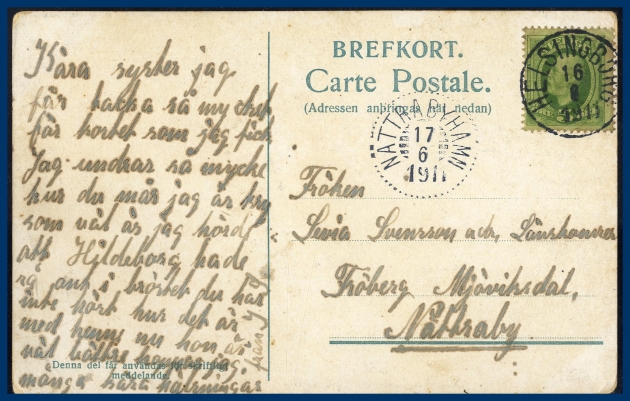 Kära syster jag
får tacka så mycket
för kortet som jag fick
Jag undrar så mycke
hur du mår jag är kry
som väl är jag hörde
att Hildeborg hade
ont i bröstet du har
inte hört hur det är
med henne nu hon är
väl bättre
många kära hälsningar
från
Denna del får användas för skriftligt
meddelande.
BREFKORT.
Carte Postale.
(Adressen anbringas här nedan)
HELSINGBORG
16
6
1911
NÄTTRABYHAMN
17
6
1911
Fröken
Svensson adr. Länshoman
Fröberg Mjöviksdal,
Nättraby